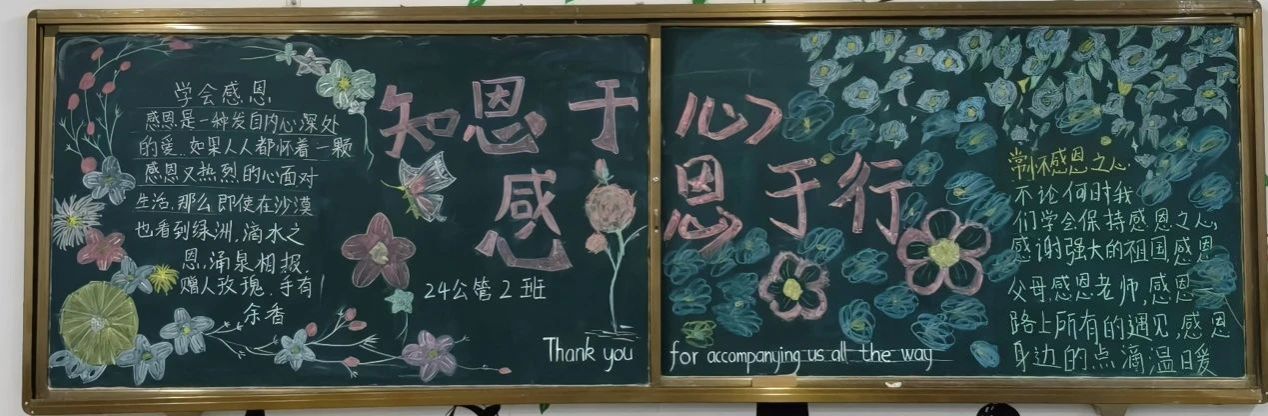 学会感恩
感恩是一种发自内心深处
的爱..如果人人都怀着一颗
感恩又热烈的心面对
生活,那么即使在沙漠
也看到绿洲.滴水之
恩,涌泉相报.
赠人玫瑰.手有
余香
知恩于心
感恩于行
24公管2班
Thank you for accompanying us all the way
常怀感恩之心.
不论何时我
们学会保持感恩之心,
感谢强大的祖国感恩
父母,感恩老师,感恩一
路上所有的遇见,感恩
身边的点滴温暖